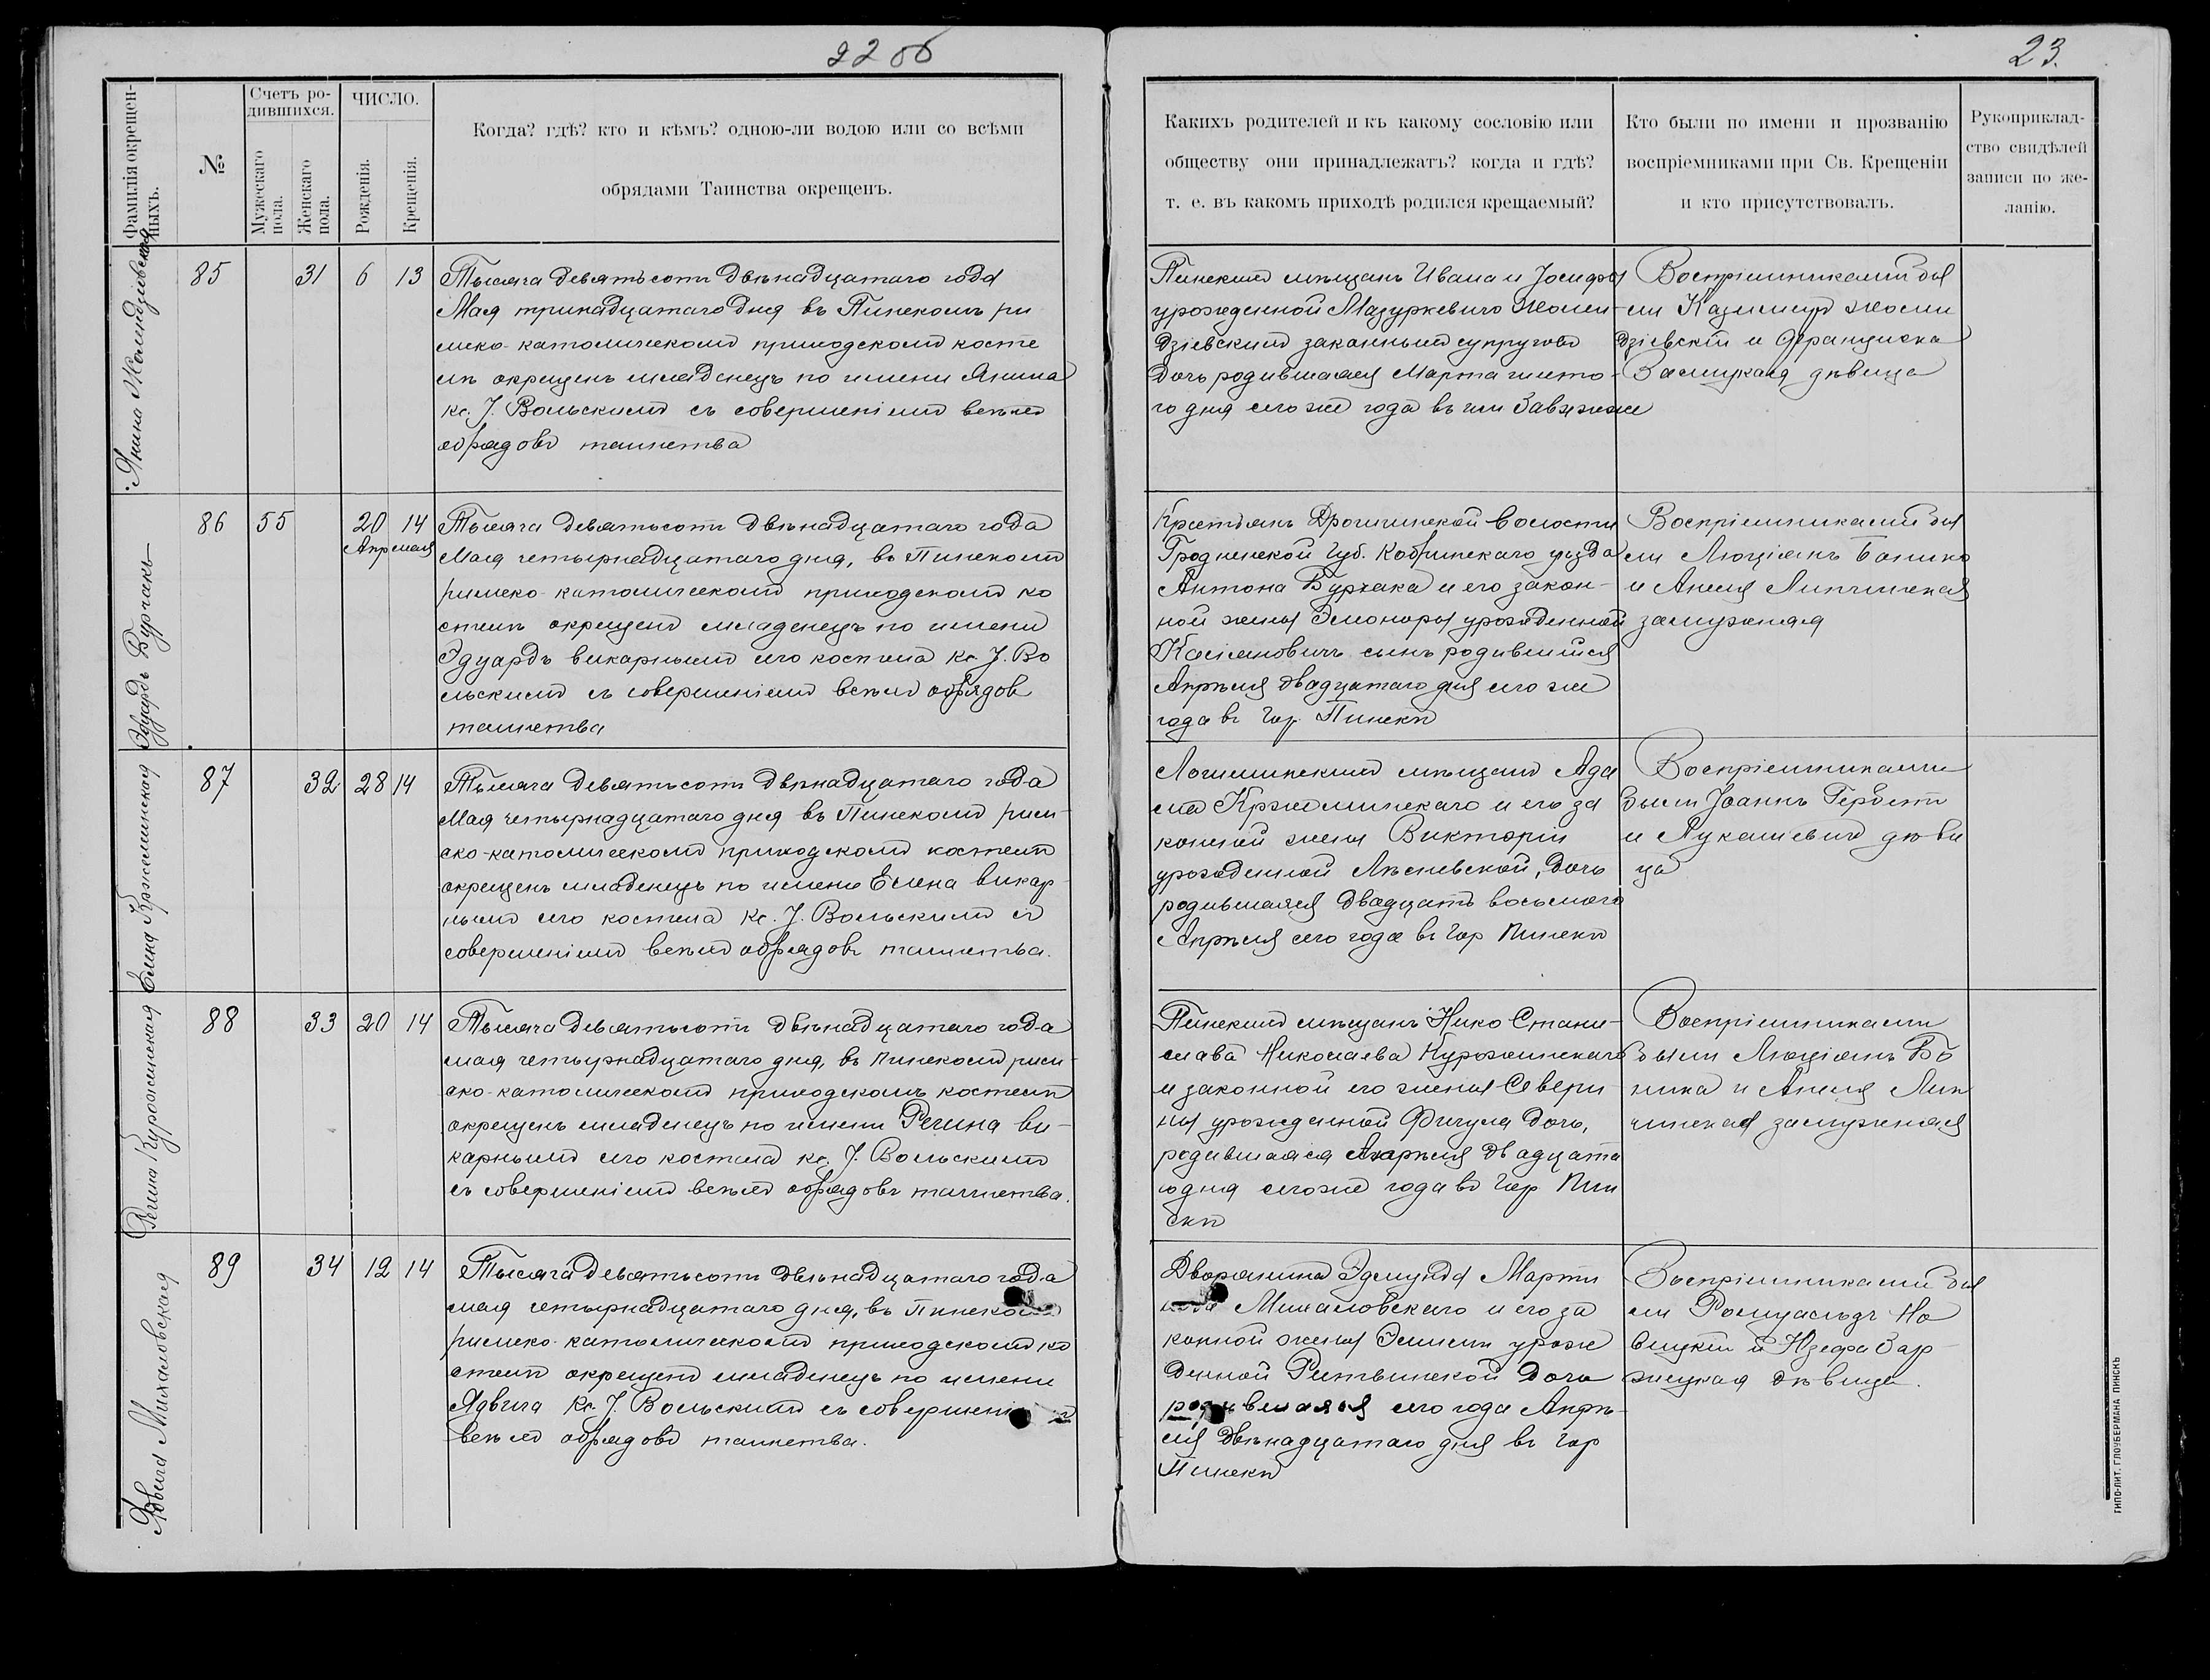 22 об
23.
Фамилія окрещен-
ныхъ.
№
Счетъ ро-
дившихся.
Мужескаго
пола.
Женскаго
пола.
ЧИСЛО.
Рожденія.
Крещенія.
Когда? гдѣ? кто и кѣмъ? одною-ли водою или со всѣми
обрядами Таинства окрещенъ.
Какихъ родителей и къ какому сословію или
обществу они принадлежатъ? когда и гдѣ?
т. е. въ какомъ приходѣ родился крещаемый?
Кто были по имени и прозванію
воспріемниками при Св. Крещеніи
и кто присутствовалъ.
Рукоприклад-
ство свидѣлей
записи по же-
ланію.
Янина
85 31 6 13
Тысяча девятьсотъ двѣнадцатаго года
Мая тринадцатаго дня въ Пинскомъ ри
мско-католическомъ приходскомъ косте
лѣ окрещенъ младенецъ по имени Янина
кс. J. Вольскимъ съ совершеніемъ всѣхъ
обрядовъ таинства
Пинскихъ мѣщанъ Ивана и Josифы
урожденной Мазуркевичъ Жолен-
дзіевскихъ законныхъ супруговъ
дочь родившаяся Марта шесто-
го дня сего же года въ им
Воспріемниками бы
ли Казимиръ
дзіевскій и Франциска
дѣвица
Эдуардъ Бурчакъ
86 55 20 14
Апр мая
Тысяча девятьсотъ двѣнадцатаго года
Мая четырнадцатаго дня, въ Пинскомъ
римско-католическомъ приходскомъ ко
стелѣ окрещенъ младенецъ по имени
Эдуардъ викарнымъ сего костела кс. J. Во
льскимъ съ совершеніемъ всѣхъ обрядовъ
таинства
Крестьянъ Дрогичинской волости
Гродненской Губ. Кобринскаго уѣзда
Антона Бурчака и его закон-
ной жены Элеоноры урожденной
Касіяновичъ сынъ родившійся
Апрѣля двадцатаго дня сего же
года въ гор Пинскѣ
Воспріемниками бы
ли Люціянъ
и Анеля Липчинская
замужняя
Елена Кржеминская
87 32 28 14
Тысяча девятьсотъ двѣнадцатаго года
Мая четырнадцатаго дня въ Пинскомъ рим-
ско-католическомъ приходскомъ костелѣ
окрещенъ младенецъ по имени Елена викар
нымъ сего костела кс. J. Вольскимъ съ
совершеніемъ всѣхъ обрядовъ таинства.
Логишинскихъ мѣщанъ Ада
ма Кржеминскаго и его за
конной жены Викторіи
урожденной Лясневской, дочь
родившаяся двадцать восьмого
Апрѣля сего года въ гор Пинскѣ
Воспріемниками
были Jоаннъ Гербетъ
и Лукашевичъ дѣви
ца
Регина Курожинская
88 33 20 14
Тысяча девятьсотъ двѣнадцатаго года
мая четырнадцатаго дня, въ Пинскомъ рим-
ско-католическомъ приходскомъ костелѣ
окрещенъ младенецъ по имени Регина ви-
карнымъ сего костела кс. J. Вольскимъ
съ совершеніемъ всѣхъ обрядовъ таинства.
Пинскихъ мѣщанъ Стани-
слава Николаева Курожинскаго
и законной его жены Севери
ны урожденной Фигула дочь,
родившаяся Апрѣля двадцата
го дня сего же года въ гор Пин
скѣ
Воспріемниками
были Люціянъ Бо
и Анеля Лип
чинская замужняя
Ядвига Михаловская
89 34 12 14
Тысяча девятьсотъ двѣнадцатаго года
мая четырнадцатаго дня, въ Пинскомъ
римско-католическомъ приходскомъ ко
стелѣ окрещенъ младенецъ по имени
Ядвига кс. J. Вольскимъ съ совершеніемъ
всѣхъ обрядовъ таинства.
Дворянина Эдмунда Марти
нова Михаловскаго и его за
конной жены Эмиліи урож
денной Ретвинской дочь
родившаяся сего года Апрѣ-
ля двѣнадцатаго дня въ гор
Пинскѣ
Воспріемниками бы
ли Ромуальдъ Но
вицкій и Юзефа Зар
жецкая дѣвица.
ТИПО-ЛИТ. ГЛОУБЕРМАНА ПИНСКЪ